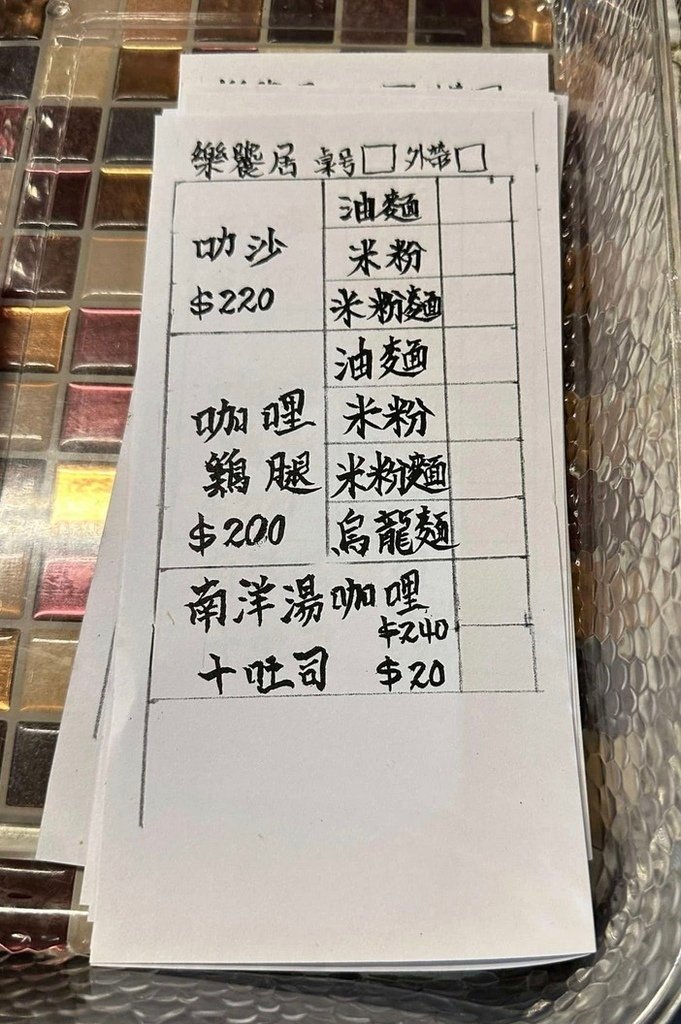 樂饕居 桌号□ 外帶□
叻沙
$220
油麵
米粉
米粉麵
咖哩
鷄腿
$200
油麵
米粉
米粉麵
烏龍麵
南洋湯咖哩
$240
十吐司 $20